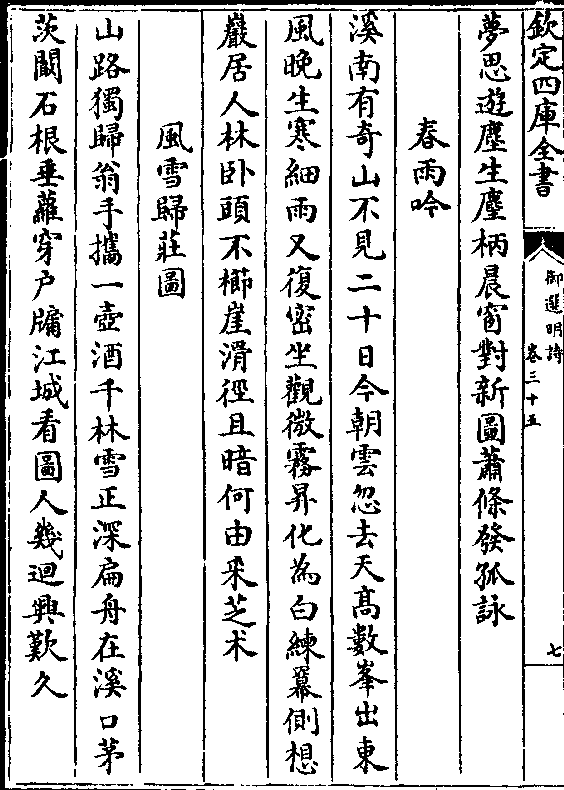 欽定四庫全書
御選明詩
卷三十五
七
夢思遊塵生塵柄晨窗對新圖蕭條發孤詠
春雨吟
溪南有奇山不見二十日今朝雲忽去天高數峯出東
風晚生寒細雨又復密坐觀微霧昇化為白練羃側想
巖居人林卧頭不櫛崖滑徑且暗何由采芝术
風雪歸莊圖
山路獨歸翁手攜一壺酒千林雪正深扁舟在溪口茅
茨闞石根垂蘿穿戶牖江城看圖人幾迴興歎久